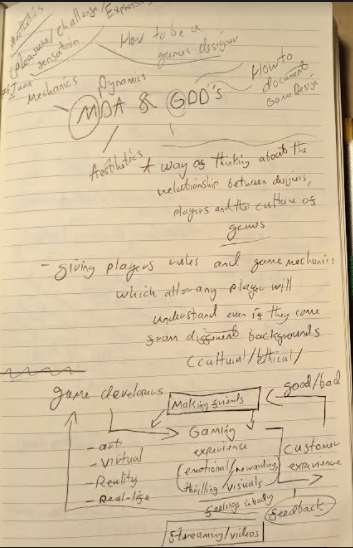 Aesthetics
(pleasure/challenge/Express
sensation
How to be a
games designer
Mechanics
Dynamics
How to
document
Game Design
MDA & GDD's
Aesthetics
A way of thinking about the
relationship between designers,
players and the culture of
games
- Giving players rules and game mechanics
which allow any player will
understand even if they come
from different backgrounds
(cultural/ethical/
game developers
Making friends
good/bad
Gaming
experience
customer
experience
- art
- Virtual
- Reality
- Real-life
(emotional/rewarding
thrilling visuals
feelings in body
feedback
Streaming/videos